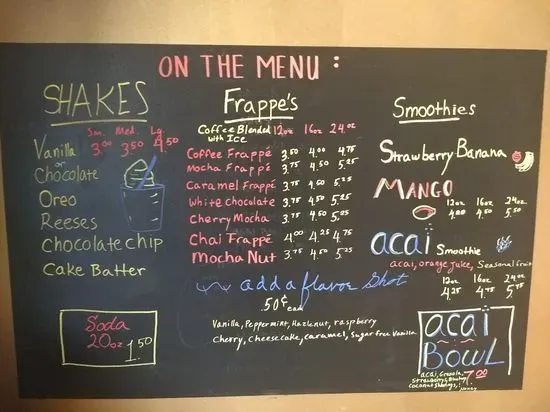 ON THE MENU :
SHAKES
Sm. Med. Lg.
Vanilla 3.00 3.50 4.50
or
Chocolate
Oreo
Reeses
Chocolate chip
Cake Batter
Soda
20oz 1.50
Frappe's
Coffee Blended with Ice 12oz 16oz 24oz
Coffee Frappé 3.50 4.00 4.75
Mocha Frappé 3.75 4.50 5.25
Caramel Frappé 3.75 4.50 5.25
White Chocolate 3.75 4.50 5.25
Cherry Mocha 3.75 4.50 5.25
Chai Frappé 4.00 4.25 4.75
Mocha Nut 3.75 4.50 5.25
add a flavor Shot
.50¢ each
Vanilla, Peppermint, Hazlenut, raspberry
Cherry, Cheesecake, caramel, Sugar free Vanilla
Smoothies
Strawberry Banana
MANGO
12oz 16oz 24oz
4.00 4.50 5.50
acaï Smoothie
acai, orange juice, Seasonal fruit
12oz 16oz 24oz
4.25 4.75 5.75
acaï
BOWL
7.00
acai, Granola,
Strawberry,
Coconut Shavings,
Honey